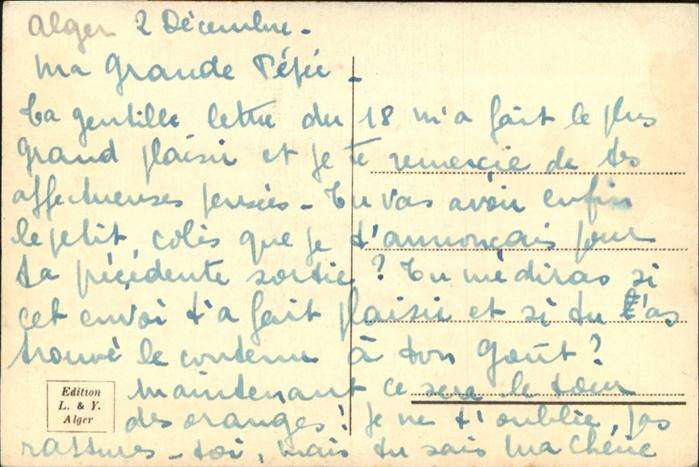 Alger 2 Décembre -
Ma Grande Féfée -
Ta gentille lettre du 18 m'a fait le plus
grand plaisir et je te remercie de tes
affectueuses pensées - Tu vas avoir enfin
le petit colis que je t'annonçais pour
ta précédente sortie? Tu me diras si
cet envoi t'a fait plaisir et si tu l'as
trouvé le contenu à ton goût?
Maintenant ce sera le tour
des oranges! Je ne t'oublie pas
rassures-toi, mais tu sais ma chérie
Edition
L. & Y.
Alger